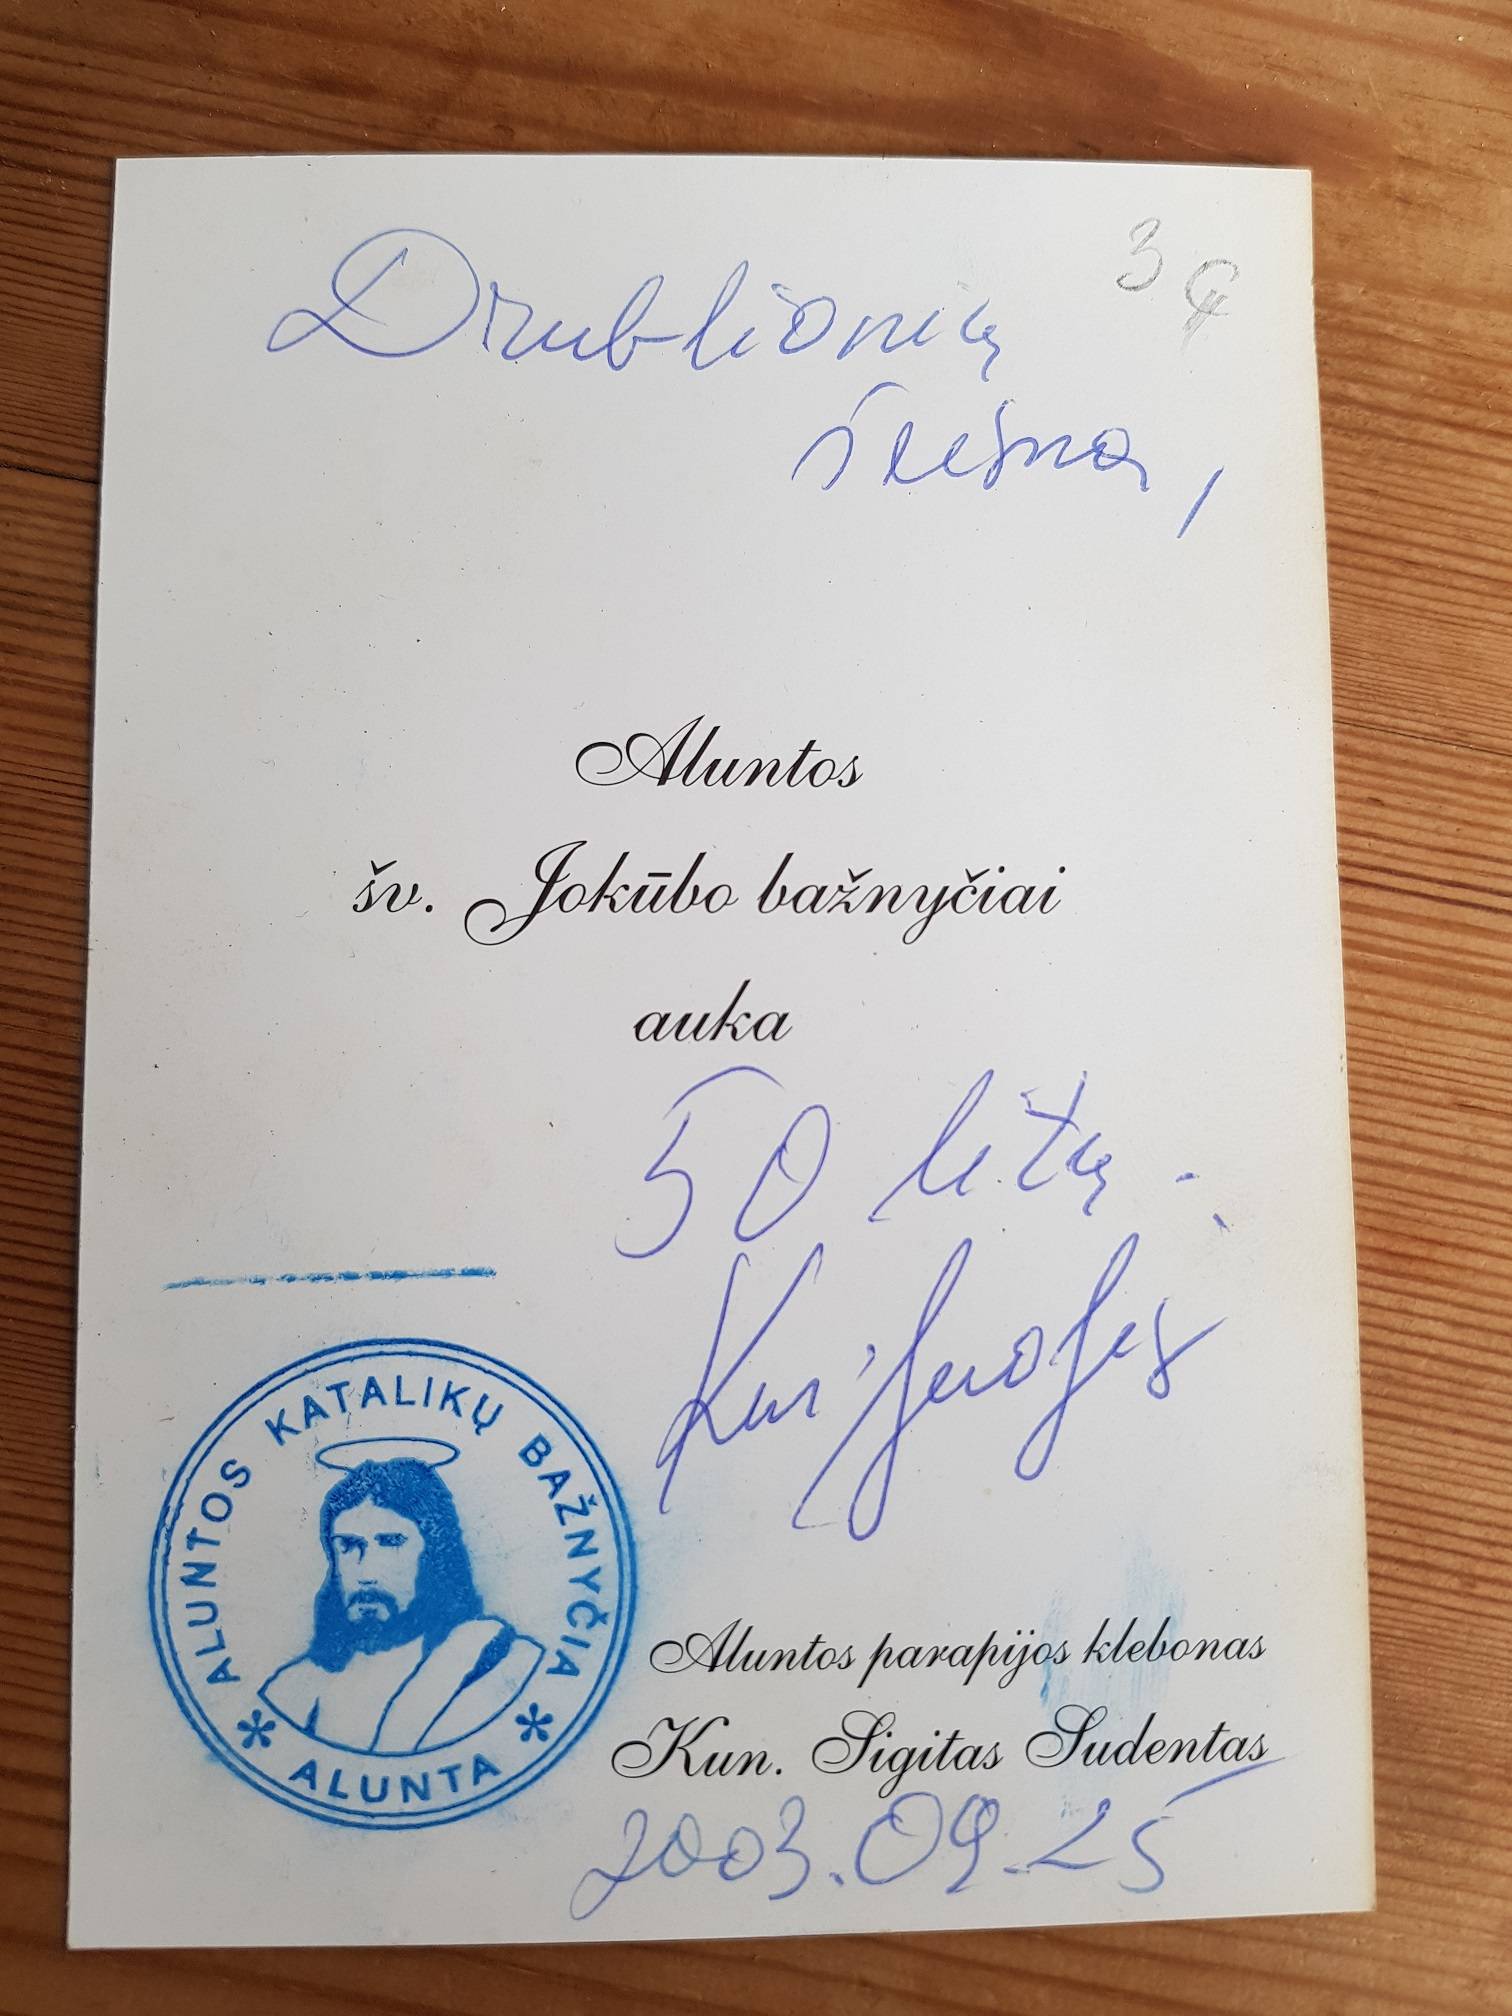 Drublionių
šeima,
3
Aluntos
šv. Jokūbo bažnyčiai
auka
50 litų.
ALUNTOS KATALIKŲ BAŽNYČIA
* ALUNTA *
Aluntos parapijos klebonas
Kun. Sigitas Sudentas
2003.09.25